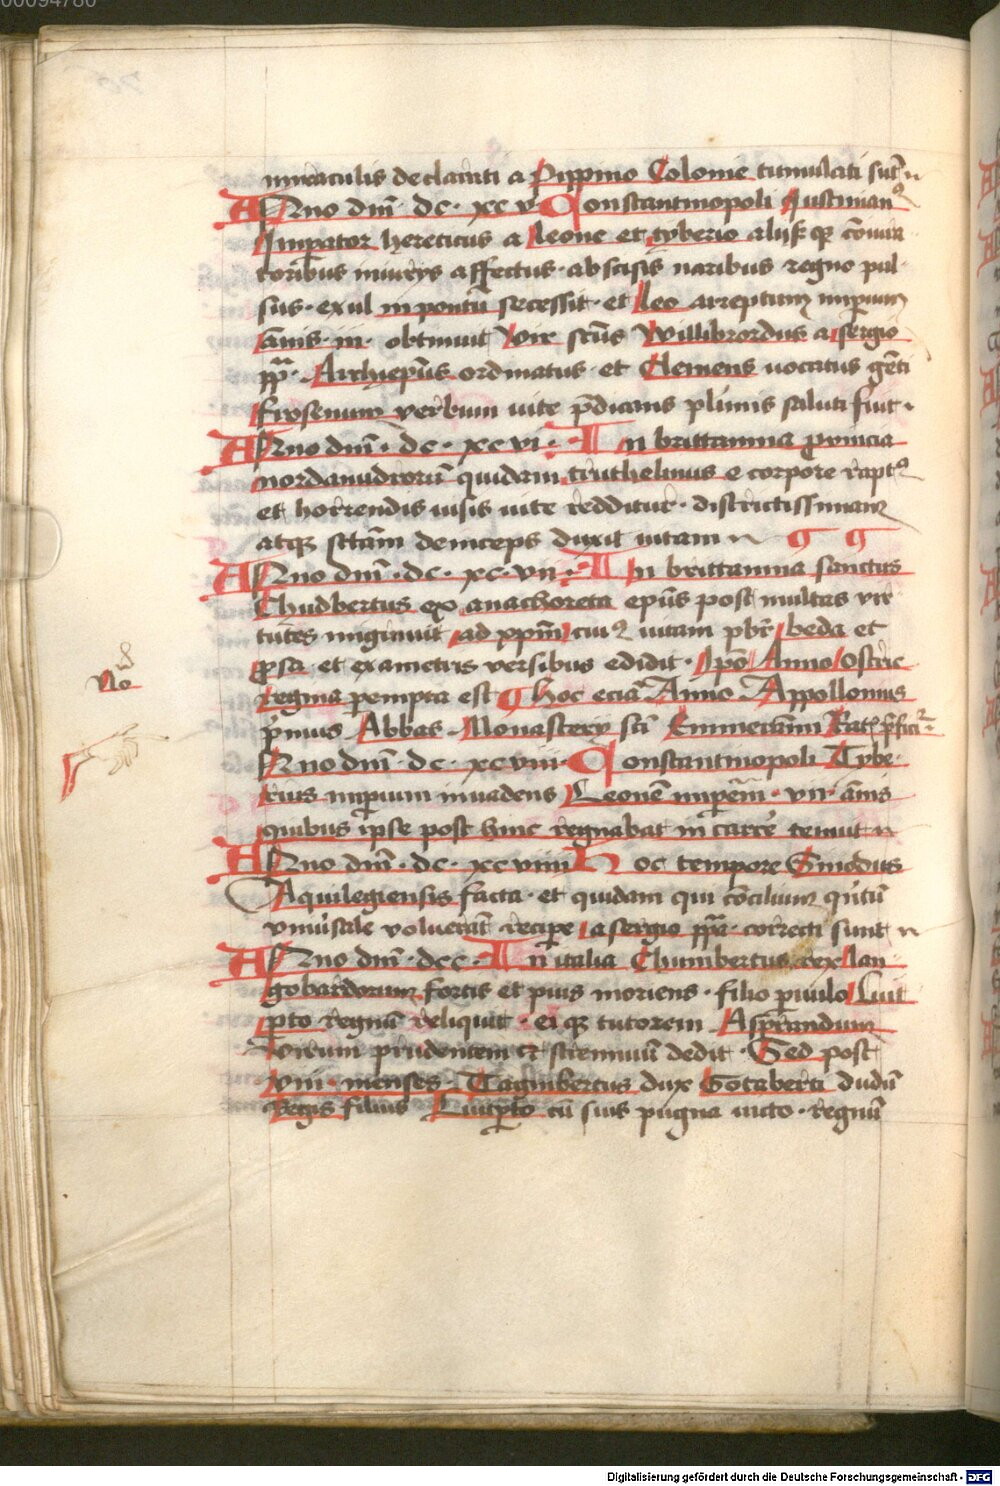 00094780
miraculis declarati a Pippino Colonie tumulati sūt
Anno dnī · dc · xcv Constantinopoli Justinianꝰ
Imperator hereticus a Leone et tyberio alijsqꝫ
toribus iniurijs affectus · abscisis naribus regno pul
sus · exul in pontū secessit · et Leo arreptum imperium
annis · iii · obtinuit Vir sctūs Willibrordus a sergio
pp̄a · Archiepūs ordinatus · et Clemens vocatus gēti
frosenum verbum vite p̄dicans plimis saluti fuit ·
Anno dnī · dc · xcvi · In brittannia prouincia
nordanudrorū quidam truthelmus e corpore raptꝰ
et horrendis visis vite redditur · districtissimam
atqꝫ scītām deinceps duxit vitam
Anno dnī · dc · xc · vii · In brittannia sanctus
Chudbertus ex anachoreta epūs post multas vir
tutes migrauit ad xpm̄ cuiꝰ vitam pbr̄ beda et
prosa et exametris versibus edidit · Ip̄o Anno Ostric
regina perempta est Hoc eciā Anno Appollonius
p̄mus Abbas Monastery sci Emmerāmi Rat p̄ficit̄
No
Anno dnī · dc · xcviii · Constantinopoli Tybe
rius imperium inuadens Leonē · vii · annis
quibus ipse post hinc regnabat in carcere tenuit
Anno dnī · dc · xcviiii Hoc tempore Sinodus
Aquilegiensis facta · et quidam qui concilium qn̄tū
vniūsale voluerāt recipe a sergio pp̄a · correcti sunt
Anno dnī · dcc · In italia Chumbertus rex lan
gobardorum fortis et pius moriens · filio paruulo Luit
perto regnū reliquit · ei qꝫ tutorem Asprandum
virum prudentem et strennuū dedit · Sed post
viii · menses Raginbertus dux Gotaberti dudū
Regis filius Luitperto cū suis pugna victo · regnū
Digitalisierung gefördert durch die Deutsche Forschungsgemeinschaft - DFG